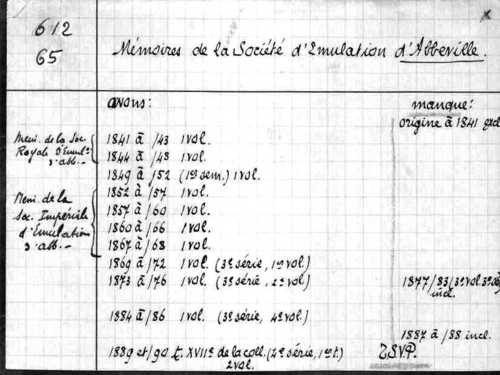 612
65
Mémoires de la Société d'Emulation d'Abbeville.
avons:
manque:
origine à 1841 excl
Mém. de la Soc
Royale d'Emul.
d'abb.-
1841 à /43 1 vol.
1844 à /48 1 vol.
1849 à /52 (1r sem.) 1 vol.
Mem. de la
Soc. Impériale
d'Emulation
d'abb.-
1852 à /57 1 vol.
1857 à /60 1 vol.
1860 à /66 1 vol.
1867 à /68 1 vol.
1869 à /72 1 vol. (3e série, 1r vol.)
1873 à /76 1 vol. (3e série, 2e vol.)
1877/83 (3e vol. 3e sé
incl.
1884 à /86 1 vol. (3e série, 4e vol.)
1887 à /88 incl.
1889 et /90 t. XVIIe de la coll. (4e série, 1r t.)
2 vol.
T.S.V.P.